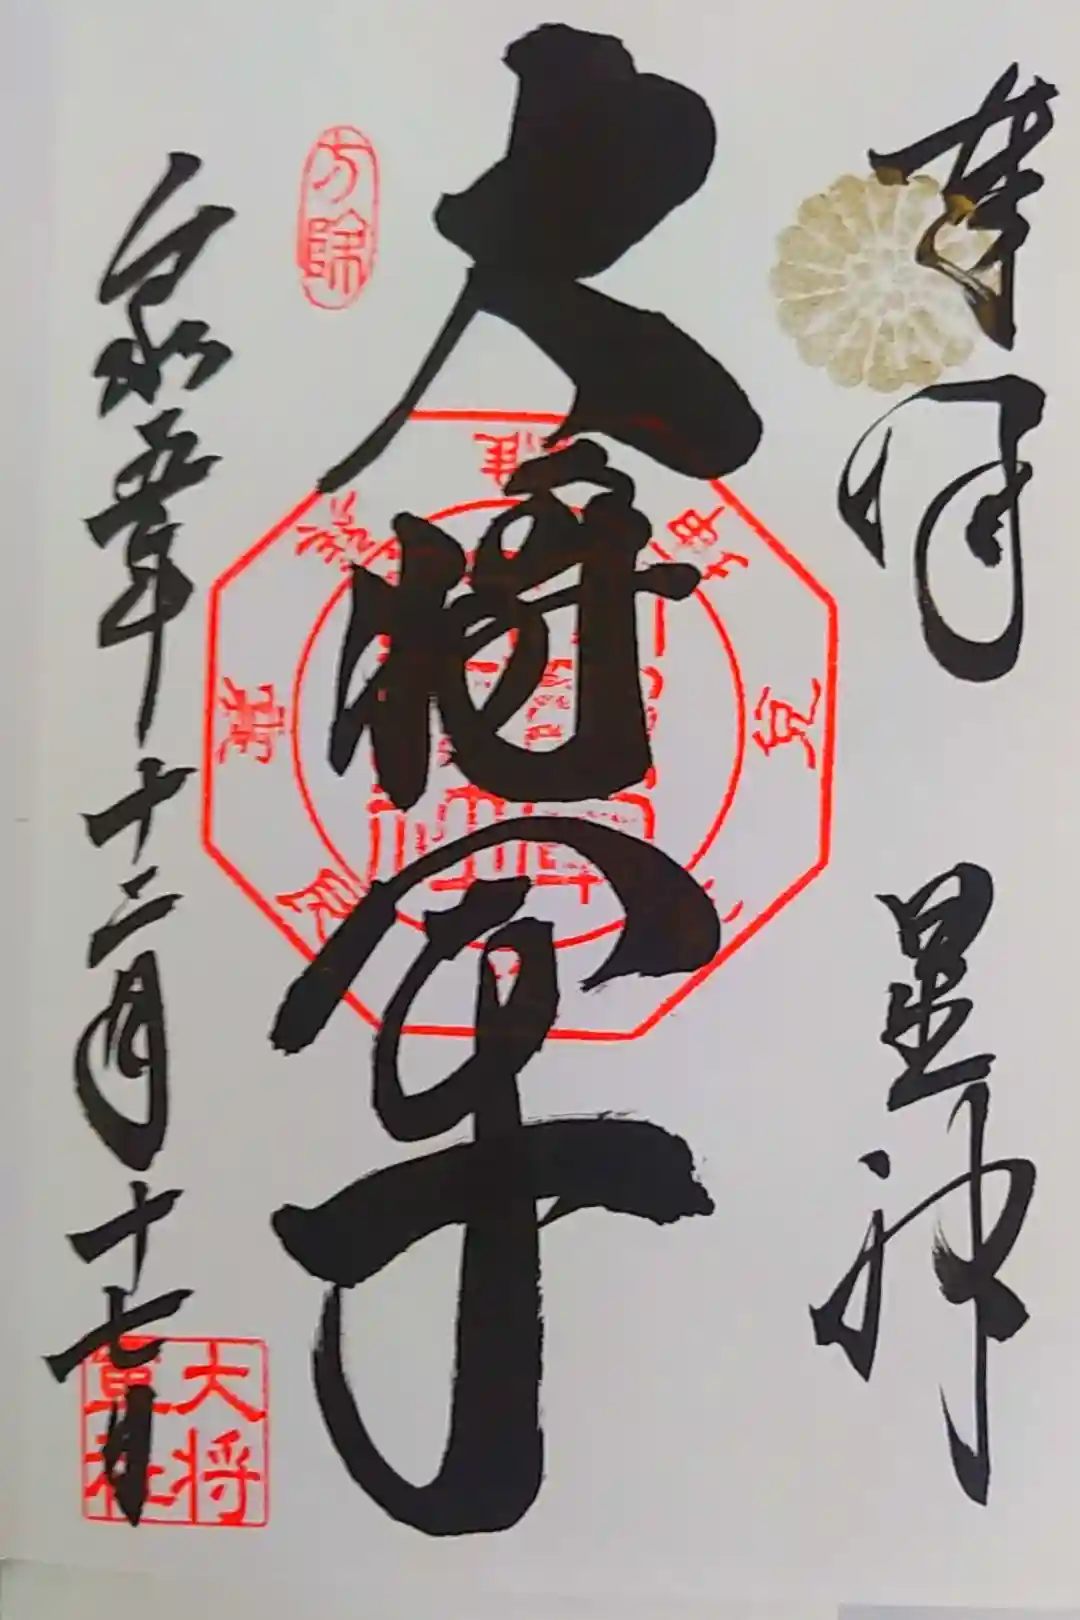 奉拝 星神
大将軍
方除
兌
艮
令和五年十二月十七日
大将
軍社